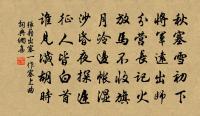 秋塞雪初下
將軍遠出師
分營長記火
放馬不收旗
月冷邊帳濕
沙昏夜探遲
征人皆白首
誰見滅胡時
張籍出塞一作塞上曲
詞典網集